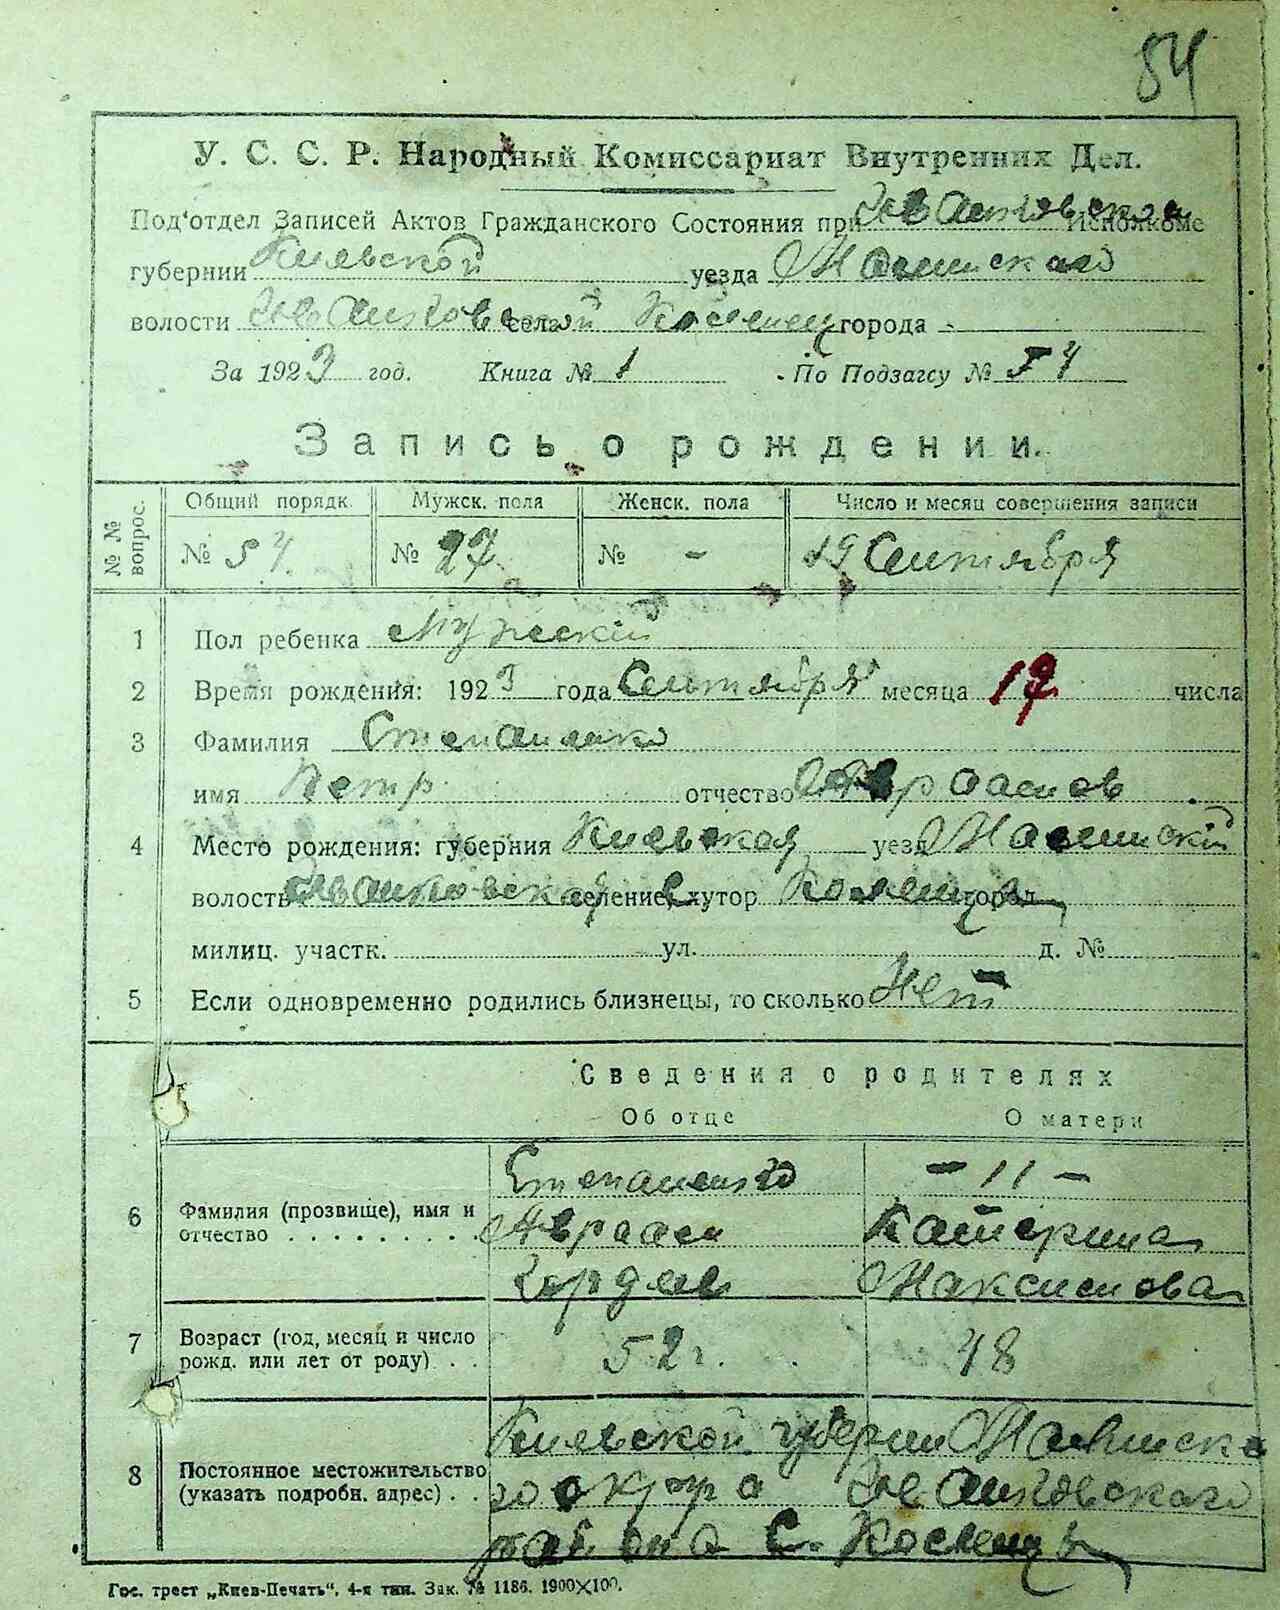 54
У. С. С. Р. Народный Комиссариат Внутренних Дел.
Под'отдел Записей Актов Гражданского Состояния при Иванковском Исполкоме
губернии Киевской уезда Малинского
волости Иванковской села города -
За 1923 год. Книга № 1 По Подзагсу № 54
Запись о рождении.
№№ вопрос. Общий порядк. Мужск. пола Женск. пола Число и месяц совершения записи
№ 54. № 27. № - 19 Сентября
1 Пол ребенка Мужский
2 Время рождения: 1923 года Сентября месяца 17 числа
3 Фамилия Степаненко
имя Петр отчество Авраамов
4 Место рождения: губерния Киевская уезд Малинский
волость Иванковская селение, хутор город
милиц. участк. ул. д. №
5 Если одновременно родились близнецы, то сколько Нет
Сведения о родителях
Об отце О матери
6 Фамилия (прозвище), имя и отчество . . . . . . . . .
Степаненко - 11 -
Авраам Катерина
Гордеев Максимовна
7 Возраст (год, месяц и число рожд. или лет от роду) . . 52 г. 48
8 Постоянное местожительство (указать подробн. адрес) . .
Киевской губернии Малинско
го округа Иванковского
района с.
Гос. трест „Киев-Печать“. 4-я тип. Зак. № 1186. 1900×100.